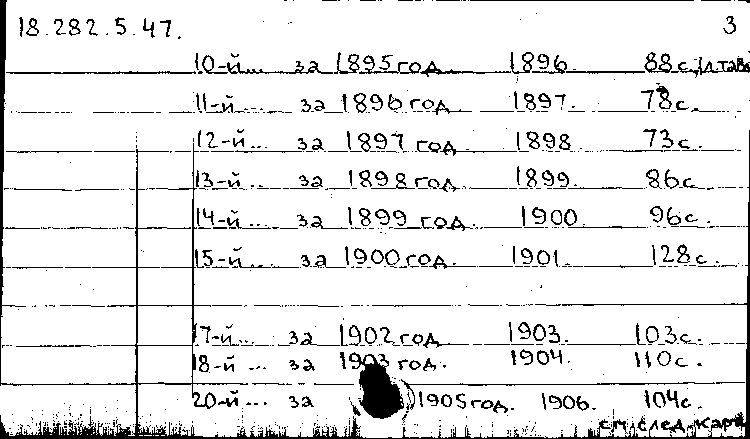 18.282.5.47. 3
10-й... за 1895 год. 1896. 88с.
11-й... за 1896 год. 1897. 78с.
12-й... за 1897 год. 1898 73с.
13-й... за 1898 год. 1899. 86с.
14-й... за 1899 год. 1900. 96с.
15-й... за 1900 год. 1901. 128с.
17-й... за 1902 год. 1903. 103с.
18-й... за 1903 год. 1904. 110с.
20-й... за 1905 год. 1906. 104с.
см. след. карт